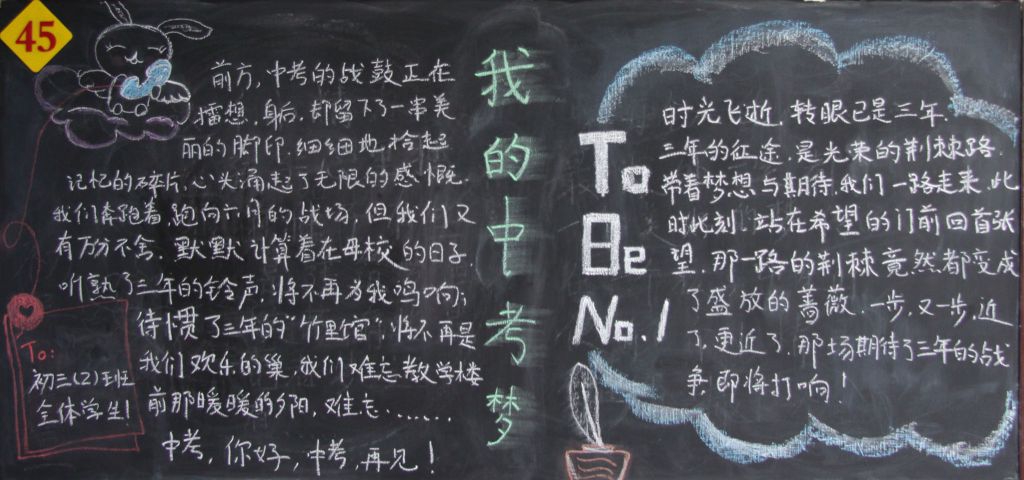 45
前方,中考的战鼓正在
擂想.身后,却留下了一串美
丽的脚印.细细地拾起
记忆的碎片,心头涌起了无限的感慨.
我们奔跑着跑向六月的战场,但我们又
有万分不舍.默默计算着在母校的日子.
听熟了三年的铃声,将不再为我鸣响;
待惯了三年的“竹里馆”,将不再是
我们欢乐的巢.我们难忘教学楼
前那暖暖的夕阳,难忘.......
中考,你好,中考,再见!
To:
初三(2)班
全体学生!
我的中考梦
To
Be
No.1
时光飞逝.转眼已是三年.
三年的征途.是光荣的荆棘路.
带着梦想与期待,我们一路走来.此
时此刻.站在希望的门前回首张
望.那一路的荆棘竟然都变成
了盛放的蔷薇.一步,又一步,近
了,更近了.那场期待了三年的战
争,即将打响!